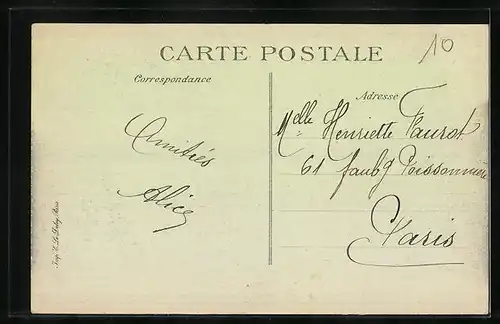 CARTE POSTALE
10
Correspondance
Adresse
Amitiés
Alice
Melle Henriette Faurot
61 faubg Poissonnière
Paris
Imp. E. Le Deley, Paris